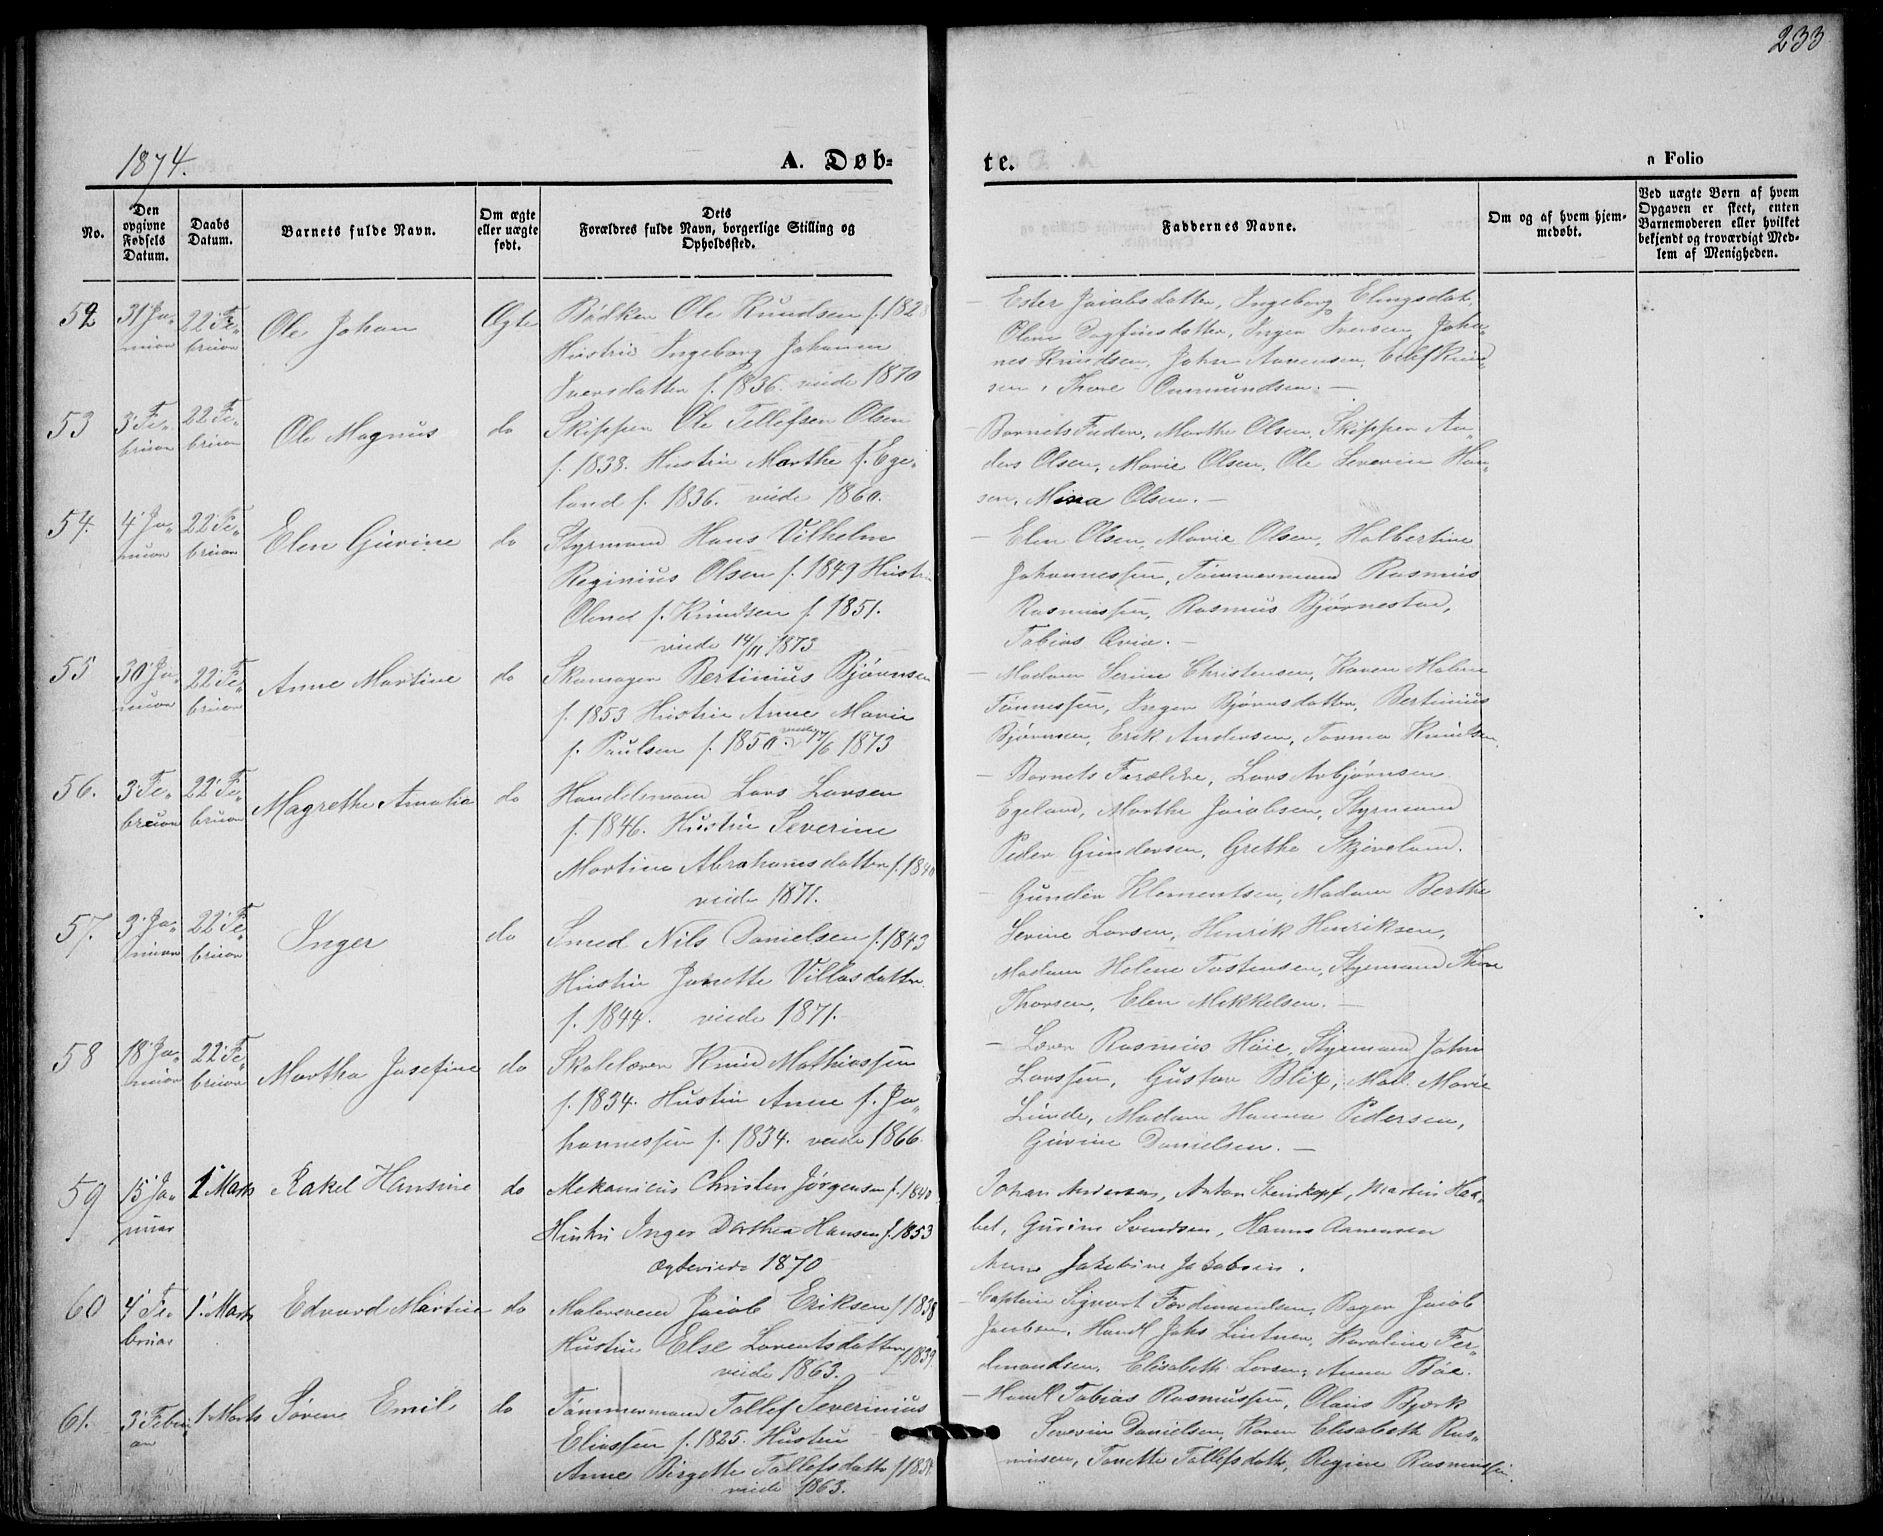 233
1874.
A. Døb-
te.
n Folio
No.
Den opgivne Fødsels Datum.
Daabs Datum.
Barnets fulde Navn.
Om ægte eller uægte født.
Dets Forældres fulde Navn, borgerlige Stilling og Opholdssted.
Faddernes Navne.
Om og af hvem hjem-
medøbt.
Ved uægte Børn af hvem
Opgaven er skeet, enten
Barnemoderen eller hvilket
bekjendt og troværdigt Med-
lem af Menigheden.
52 31' Ja- 22' Fe- Ole Johan Ægte Bødker Ole Knudsen f. 1828
nuar bruar Hustru Ingeborg Johanne
Iversdatter f. 1836. viede 1870
- Ester Jacobsdatter, Ingeborg Elingsdat.
Olene Dagfinsdatter, Inger Iversen, Johan-
nes Knudsen, John Aanensen, Eilef Knud
sen, Thore Ommundsen. -
53 3' Fe- 22' Fe- Ole Magnus do Skipper Ole Tellefsen Olsen
bruar bruar f. 1838. Hustru Marthe f. Ege-
land f. 1836. viede 1860.
- Barnets Fader, Marthe Olsen, Skipper An-
ders Olsen, Marie Olsen, Ole Severin Han-
sen, Mina Olsen. -
54. 4' Ja- 22' Fe- Elen Gurine do Styrmand Hans Vilhelm
nuar bruar Reginius Olsen f. 1849 Hustru
Olene f. Knudsen f. 1851.
viede 14/11 1873
- Elen Olsen, Marie Olsen, Halbertine
Johannessen, Tømmermand Rasmus
Rasmussen, Rasmus Bjørnestad,
Tobias Qvia. -
55 30' Ja- 22' Fe- Anne Martine do Skomager Bertinius Bjørnsen
nuar bruar f. 1853 Hustru Anne Marie
f. Paulsen f. 1850. viede 17/6 1873
- Madam Serine Christensen, Karen Malene
Tønnessen, Inger Bjørnsdatter, Bertinius
Bjørnsen, Erik Andersen, Tormo Knudsen.
56. 3' Fe- 22' Fe- Magrethe Amalia do Handelsmand Lars Larsen
bruar bruar f. 1846. Hustru Severine
Martine Abrahamsdatter f. 1840
viede 1871.
- Barnets Forældre, Lars Asbjørnsen
Egeland, Marthe Jacobsen, Styrmand
Peder Gundersen, Grethe Skjæveland.
57. 3' Ja- 22' Fe- Inger do Smed Nils Danielsen f. 1843
nuar bruar Hustru Janette Villasdatter
f. 1844. viede 1871.
- Gunder Klementsen, Madam Berthe
Serine Larsen, Henrik Henriksen,
Madam Helene Tostensen, Styrmand Thore
Thorsen, Elen Mikkelsen. -
58 18' Ja- 22' Fe- Martha Josefine do Skolelærer Knud Mathiassen
nuar bruar f. 1834. Hustru Anne f. Jo-
hannessen f. 1834. viede 1866.
- Lærer Rasmus Høie, Styrmand John
Larssen, Gustav Blix, Mad. Marie
Lunde, Madam Hanna Pedersen,
Gurine Danielsen. -
59 15' Ja- 1' Marts Rakel Hansine do Mekanicus Christen Jørgensen f. 1840
nuar Hustru Inger Dorthea Hansen f. 1853
Ægteviede 1870
Johan Andersen, Anton Steinkopf, Martin Haa-
bet, Gurine Svendsen, Hanna Aanensen
Anne Jakobine Jakobsen.
60 4' Fe- 1' Marts Edvard Martin do Malersvend Jacob Eriksen f 1838
bruar Hustru Else Laurentsdatter f 1839.
viede 1863.
- Captein Sigvart Ferdinandsen, Bager Jacob
Jacobsen, Handl Johs Lintner, Karoline Fer-
dinandsen, Elisabeth Larsen, Anna Bøe.
61. 3' Febru 1' Marts Sørene Emilie do Tømmermand Tollef Severinius
ar Eliassen f. 1825. Hustru
Anne Birgitte Tollefsdatter f 1838
viede 1863.
- Handl Tobias Rasmussen, Olaus Bjørk
Severin Danielsen, Karen Elisabeth Ras-
mussen, Tonette Tollefsdatter, Regine Rasmussen.